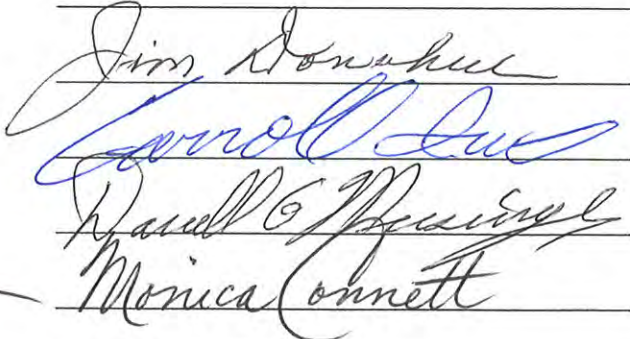 Jim Donahue
Carroll
Darrell G
Monica Connett